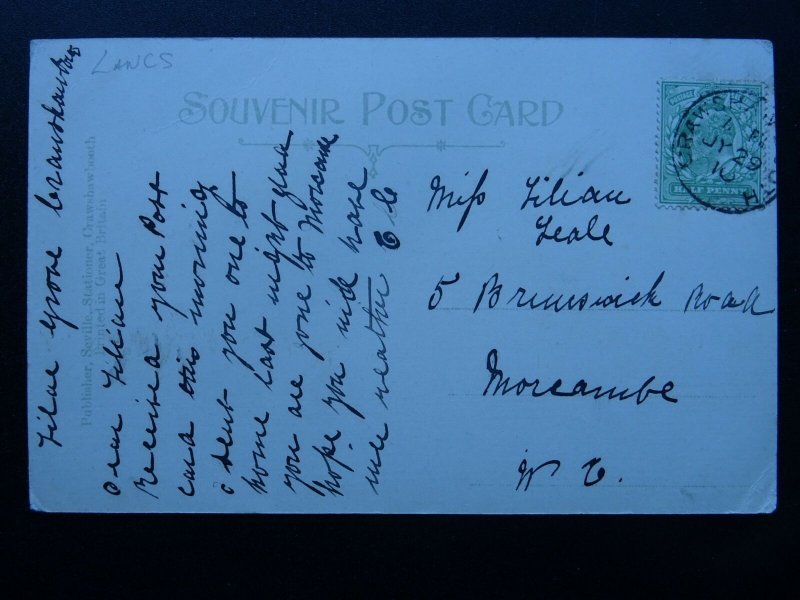 LANCS
SOUVENIR POST CARD
Publisher, Seville, Stationer, Crawshawbooth
Printed in Great Britain
HALF PENNY
CRAWSHAWBOOTH
JY 29
10
Miss Lilian
Leale
5 Brunswick Road
Morecambe
W E.
Lilac Grove Crawshawbooth
Dear Lilian
Received your Post
card this morning
I sent you one to
home last night
you are gone to
hope you will have
weather